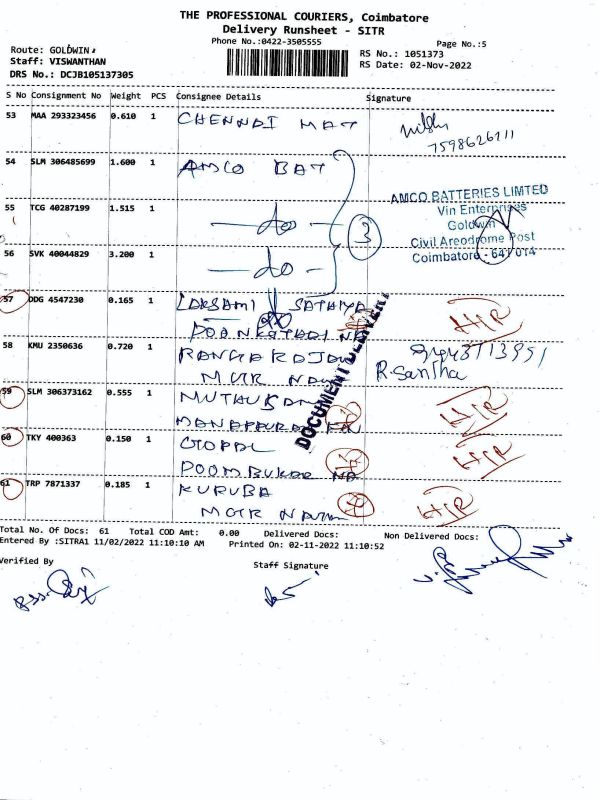 THE PROFESSIONAL COURIERS, Coimbatore
Delivery Runsheet - SITR
Phone No.:0422-3505555
Page No.:5
Route: GOLDWIN
Staff: VISWANTHAN
DRS No.: DCJB105137305
RS No.: 1051373
RS Date: 02-Nov-2022
S No Consignment No Weight PCS Consignee Details Signature
53 MAA 293323456 0.610 1 CHENNAI MAT
7598626211
54 SLM 306485699 1.600 1 AMCO BAT
AMCO BATTERIES LIMTED
Vin Enterprises
Goldwin
Civil Areodrome Post
Coimbatore - 641 014
55 TCG 40287199 1.515 1 -do-
3
56 SVK 40044829 3.200 1 -do-
57 DDG 4547230 0.165 1 LAKSAMI SATHIYA
58 KMU 2350636 0.720 1 RANGARAJAN
MGR
R. Santha
DOCUMENT DELIVERY
59 SLM 306373162 0.555 1
60 TKY 400363 0.150 1 GOPAL
POOMBUKAR NA
61 TRP 7871337 0.185 1 KURUBA
MGR
Total No. Of Docs: 61 Total COD Amt: 0.00 Delivered Docs: Non Delivered Docs:
Entered By :SITRA1 11/02/2022 11:10:10 AM Printed On: 02-11-2022 11:10:52
Verified By
Staff Signature